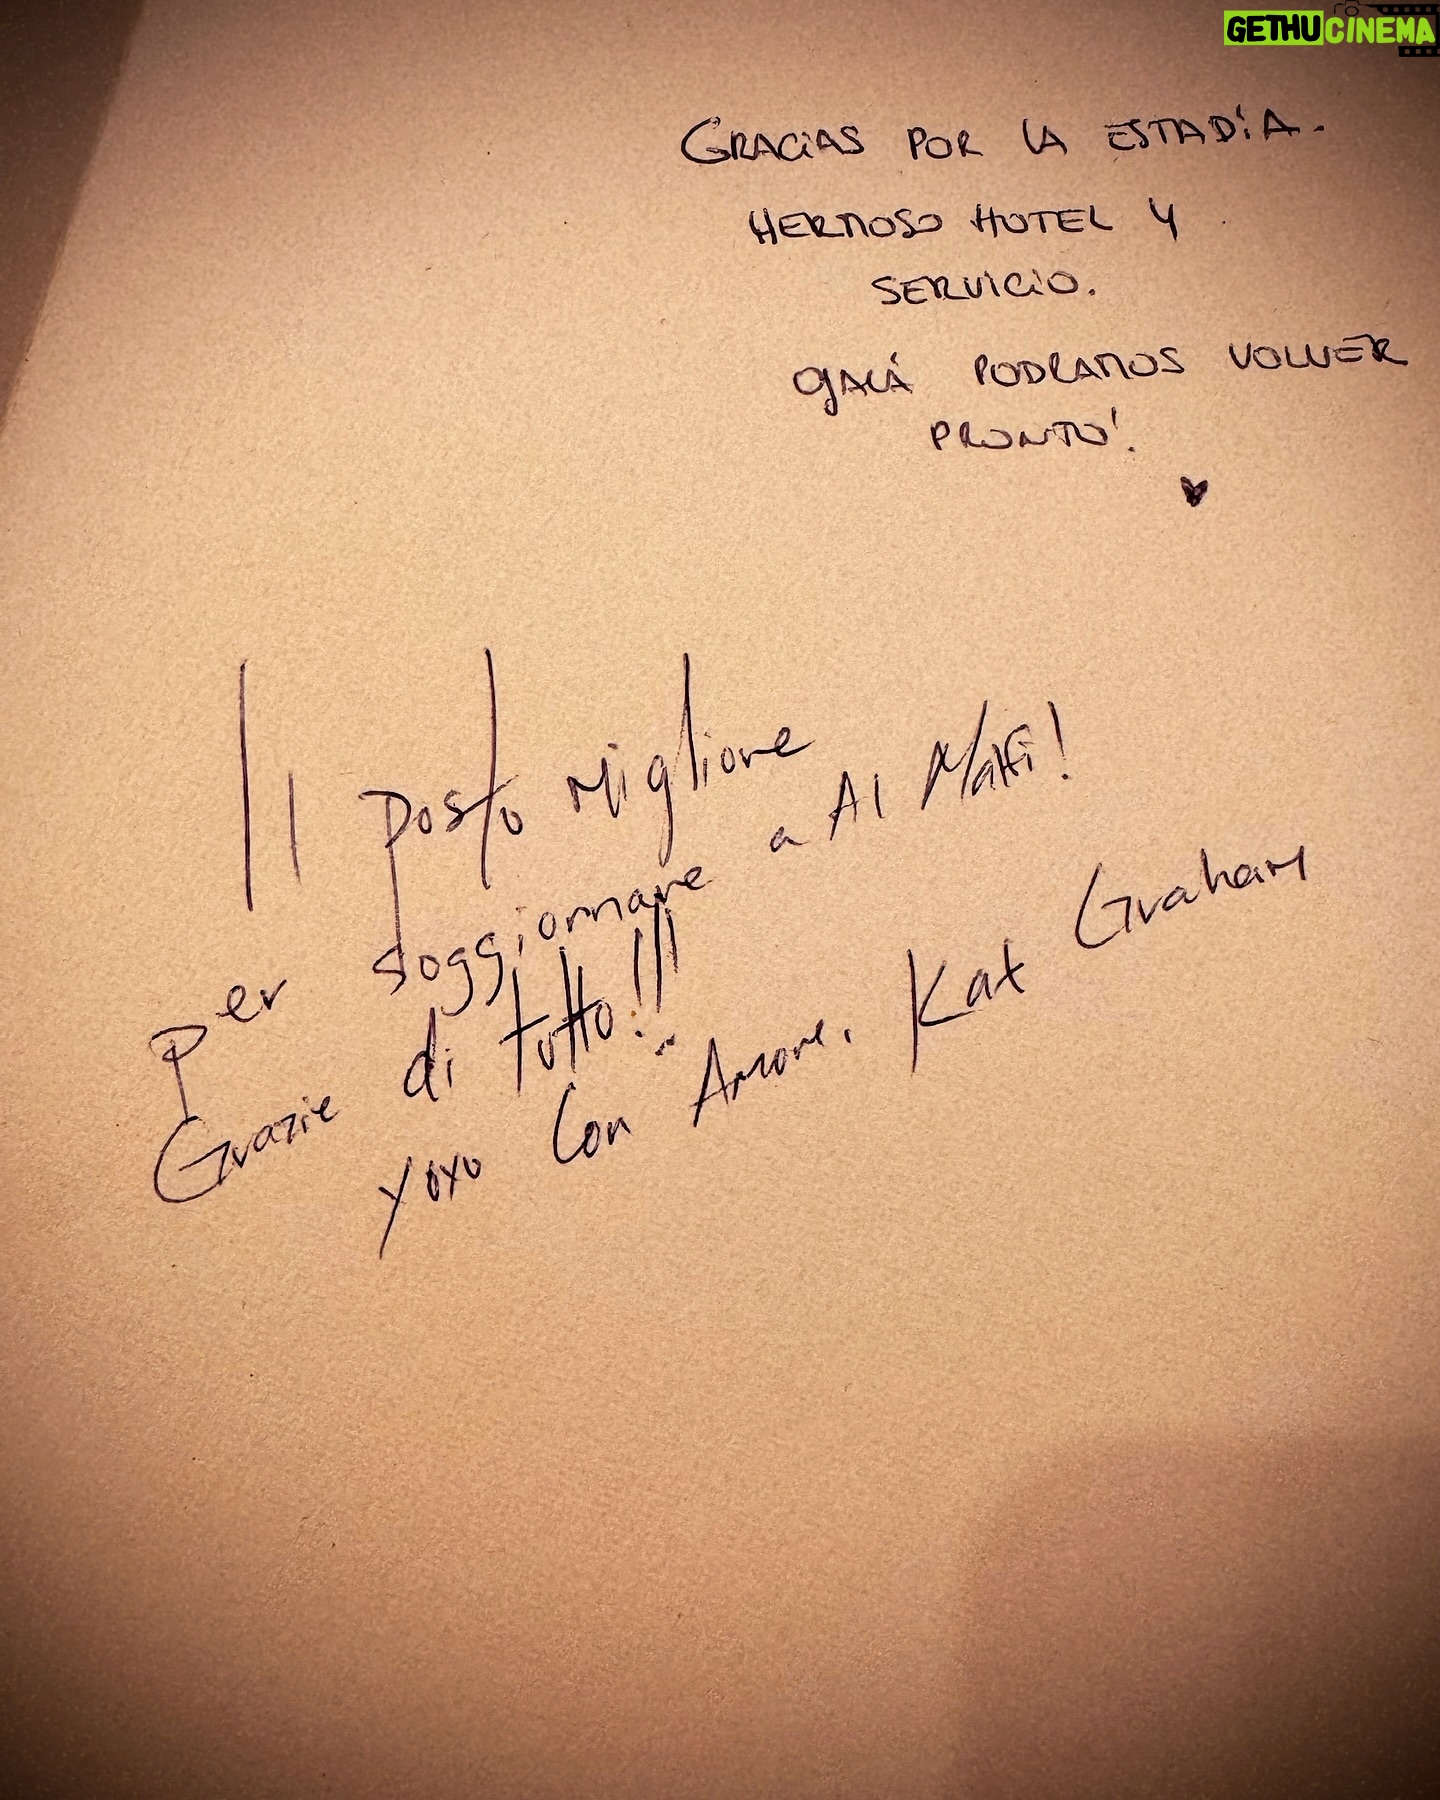 GETHUCINEMA
GRACIAS POR LA ESTADÍA.
HERMOSO HOTEL Y
SERVICIO.
OJALÁ PODRAMOS VOLVER
PRONTO!
Il posto migliore
per soggiornare a Al Malfi!
Grazie di tutto!!!
xoxo Con Amore, Kat Graham